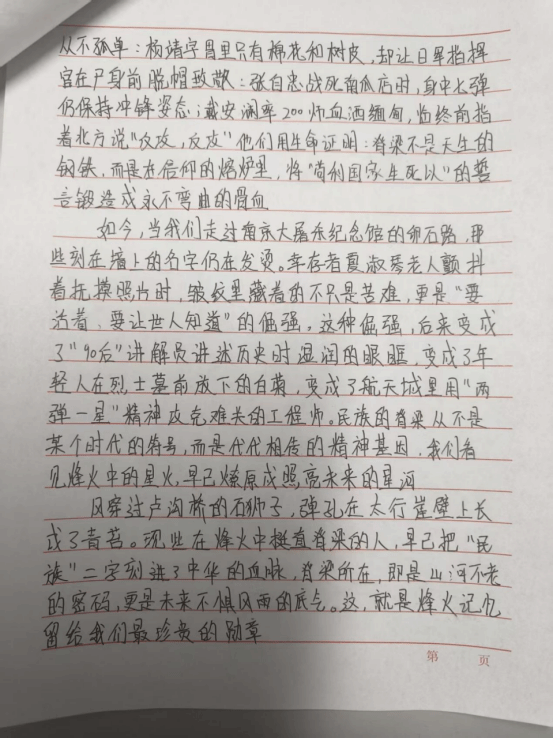 从不孤单：杨靖宇胃里只有棉花和树皮，却让日军指挥
官在尸身前脱帽致敬；张自忠战死南瓜店时，身中七弹
仍保持冲锋姿态；戴安澜率200师血洒缅甸，临终前指
着北方说"反攻，反攻"他们用生命证明：脊梁不是天生的
钢铁，而是在信仰的熔炉里，将"苟利国家生死以"的誓
言锻造成永不弯曲的骨血
如今，当我们走过南京大屠杀纪念馆的卵石路，那
些刻在墙上的名字仍在发烫。幸存者夏淑琴老人颤抖
着抚摸照片时，皱纹里藏着的不只是苦难，更是"要
活着，要让世人知道"的倔强。这种倔强，后来变成
了"90后"讲解员讲述历史时湿润的眼眶，变成了年
轻人在烈士墓前放下的白菊，变成了航天城里用"两
弹一星"精神攻克难关的工程师。民族的脊梁从不是
某个时代的符号，而是代代相传的精神基因，我们看
见烽火中的星火，早已燎原成照亮未来的星河
风穿过卢沟桥的石狮子，弹孔在太行崖壁上长
成了青苔。那些在烽火中挺直脊梁的人，早已把"民
族"二字刻进了中华的血脉，脊梁所在，即是山河不老
的密码，更是未来不惧风雨的底气。这，就是烽火记忆
留给我们最珍贵的勋章
第 页